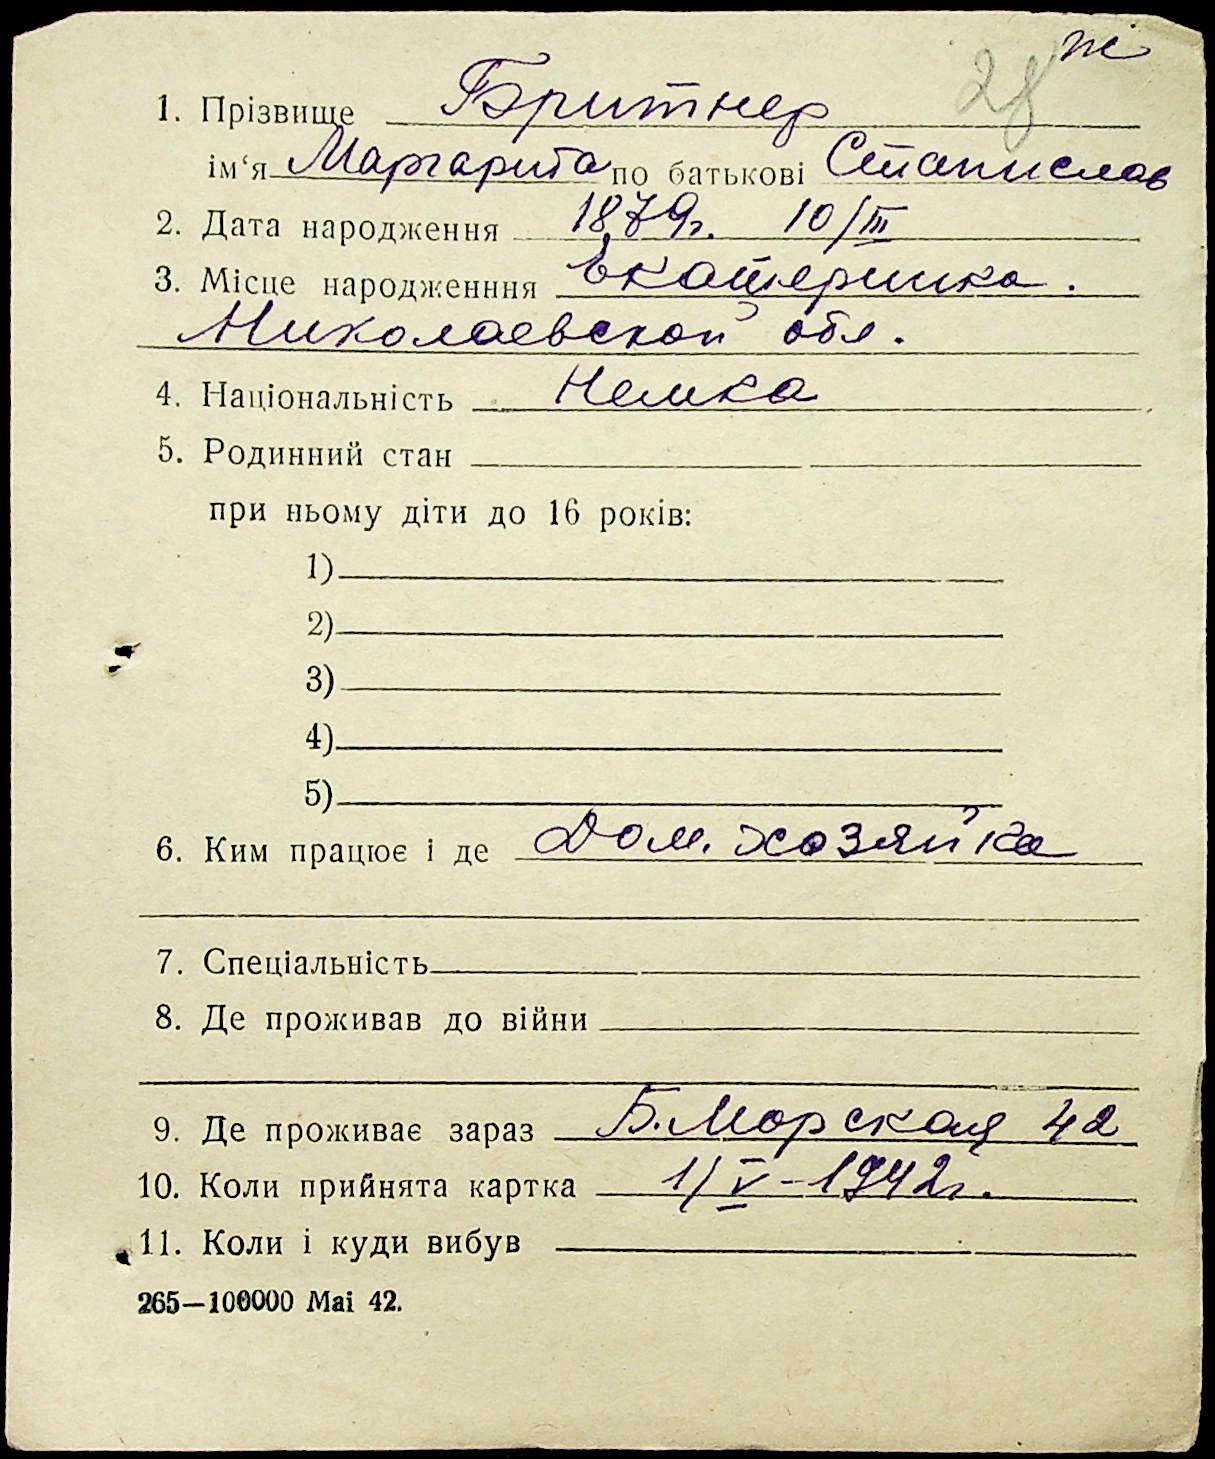 ж
28
1. Прізвище Бритнер
ім‘я Маргарита по батькові Станислав
2. Дата народження 1879г. 10/III
3. Місце народженння Екатеринка.
Николаевской обл.
4. Національність Немка
5. Родинний стан
при ньому діти до 16 років:
1)
2)
3)
4)
5)
6. Ким працює і де Дом. хозяйка
7. Спеціальність
8. Де проживав до війни
9. Де проживає зараз Б. Морская 42
10. Коли прийнята картка 1/V-1942г.
11. Коли і куди вибув
265—100000 Mai 42.